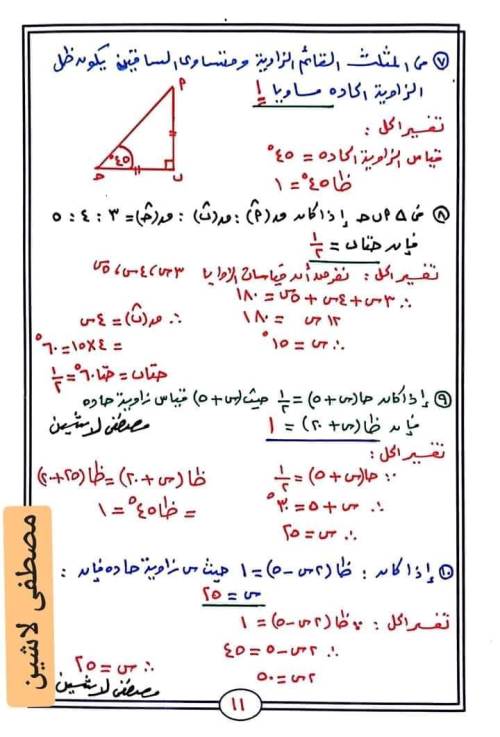 ٧ فى المثلث القائم الزاوية ومتساوى الساقين يكون ظل
الزاوية الحاده مساويا ١
تفسير الحل :
قياس الزاوية الحاده = ٤٥°
ظا ٤٥° = ١
٤٥°
٨ فى △ ٩ ب ح إذا كان ق(٩̂) : ق(ب̂) : ق(ح̂) = ٣ : ٤ : ٥
فإن حتاب = ١/٢
تفسير الحل : نفرض أن قياسات الزوايا ٣س ، ٤س ، ٥س
∴ ٣س + ٤س + ٥س = ١٨٠
١٢س = ١٨٠ ∴ ق(ب̂) = ٤س
∴ س = ١٥° = ٤×١٥ = ٦٠°
حتاب = حتا ٦٠° = ١/٢
٩ إذا كان حا(س + ٥) = ١/٢ حيث (س + ٥) قياس زاوية حاده
فإن ظا(س + ٢٠) = ١ مصطفى لاشين
تفسير الحل :
∵ حا(س + ٥) = ١/٢ ظا(س + ٢٠) = ظا(٢٥ + ٢٠)
∴ س + ٥ = ٣٠° = ظا ٤٥° = ١
∴ س = ٢٥
١٠ إذا كان : ظا(٢س - ٥) = ١ حيث س زاوية حاده فإن :
س = ٢٥
تفسير الحل : ∵ ظا(٢س - ٥) = ١
∴ ٢س - ٥ = ٤٥
٢س = ٥٠ ∴ س = ٢٥
مصطفى لاشين
١١
مصطفى لاشين